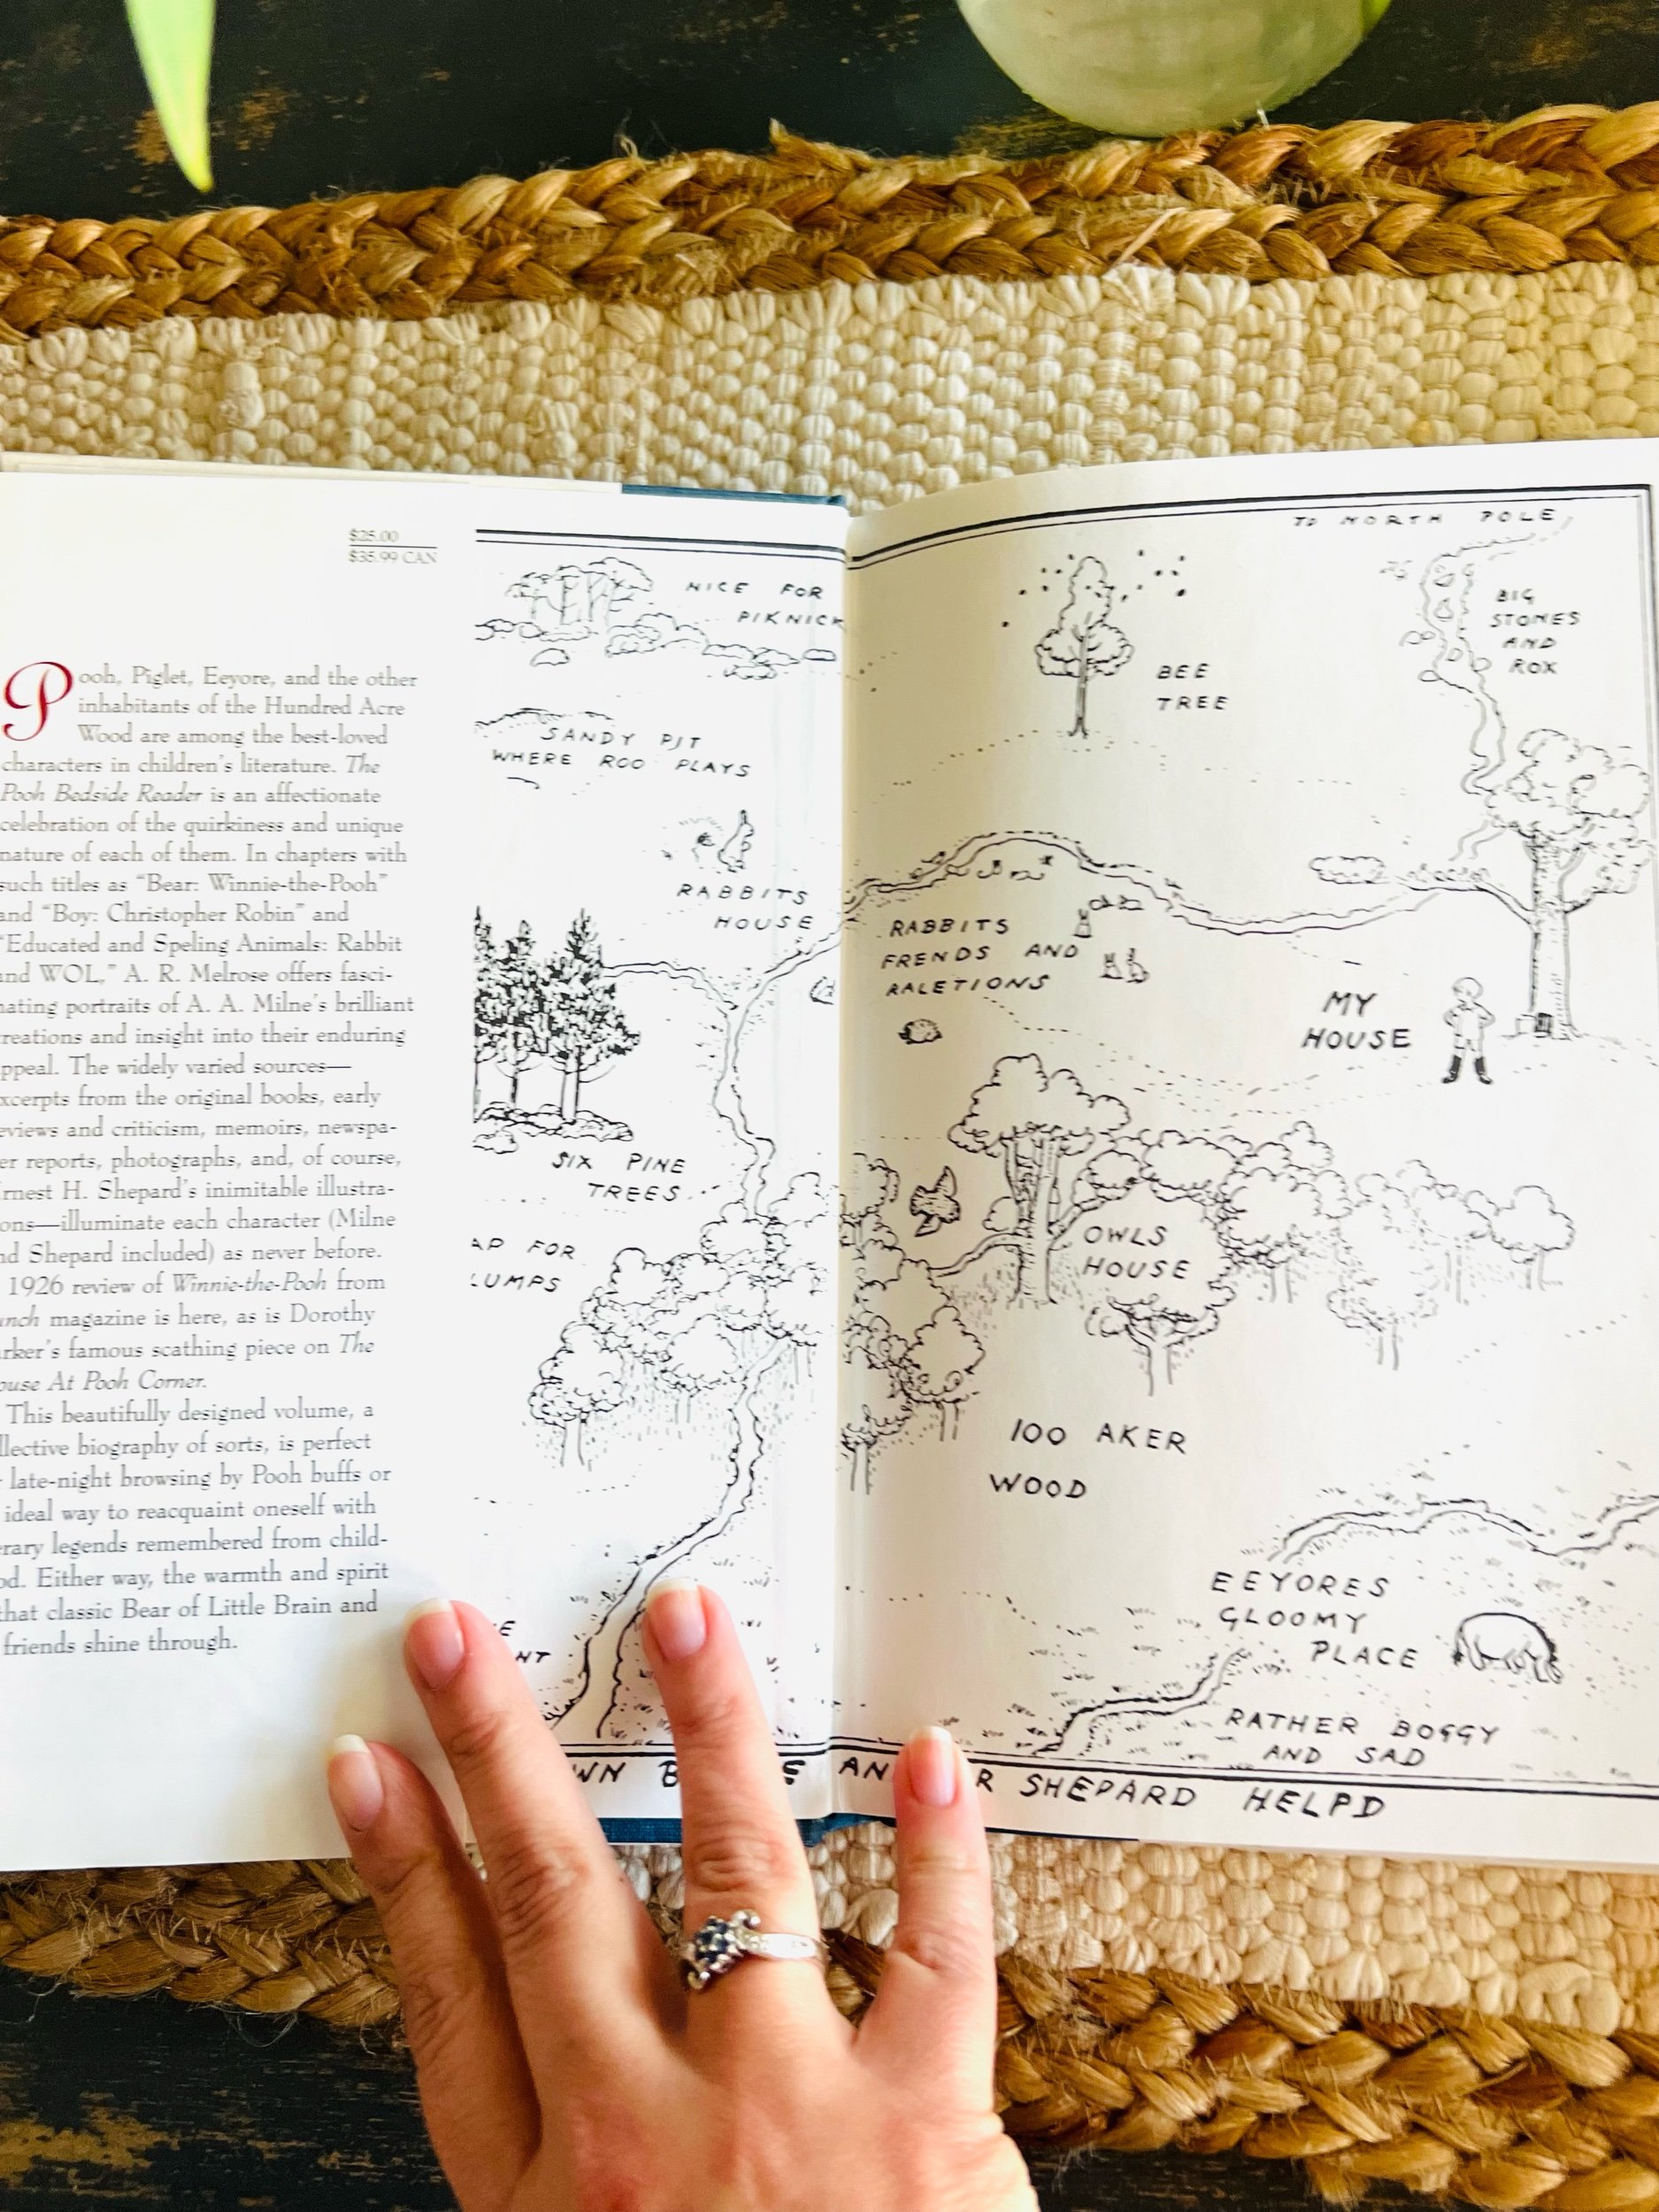 $25.00
$35.99 CAN
Pooh, Piglet, Eeyore, and the other
inhabitants of the Hundred Acre
Wood are among the best-loved
characters in children's literature. The
Pooh Bedside Reader is an affectionate
celebration of the quirkiness and unique
nature of each of them. In chapters with
such titles as "Bear: Winnie-the-Pooh"
and "Boy: Christopher Robin" and
"Educated and Speling Animals: Rabbit
and WOL," A. R. Melrose offers fasci-
nating portraits of A. A. Milne's brilliant
creations and insight into their enduring
appeal. The widely varied sources—
excerpts from the original books, early
reviews and criticism, memoirs, newspa-
er reports, photographs, and, of course,
Ernest H. Shepard's inimitable illustra-
ons—illuminate each character (Milne
nd Shepard included) as never before.
1926 review of Winnie-the-Pooh from
unch magazine is here, as is Dorothy
arker's famous scathing piece on The
ouse At Pooh Corner.
This beautifully designed volume, a
llective biography of sorts, is perfect
late-night browsing by Pooh buffs or
ideal way to reacquaint oneself with
erary legends remembered from child-
od. Either way, the warmth and spirit
that classic Bear of Little Brain and
friends shine through.
NICE FOR
PIKNICK
SANDY PIT
WHERE ROO PLAYS
RABBITS
HOUSE
SIX PINE
TREES
AP FOR
LUMPS
TO NORTH POLE
BIG
STONES
AND
ROX
BEE
TREE
RABBITS
FRENDS AND
RALETIONS
MY
HOUSE
OWLS
HOUSE
100 AKER
WOOD
EEYORES
GLOOMY
PLACE
RATHER BOGGY
AND SAD
WN B E AN R SHEPARD HELPD